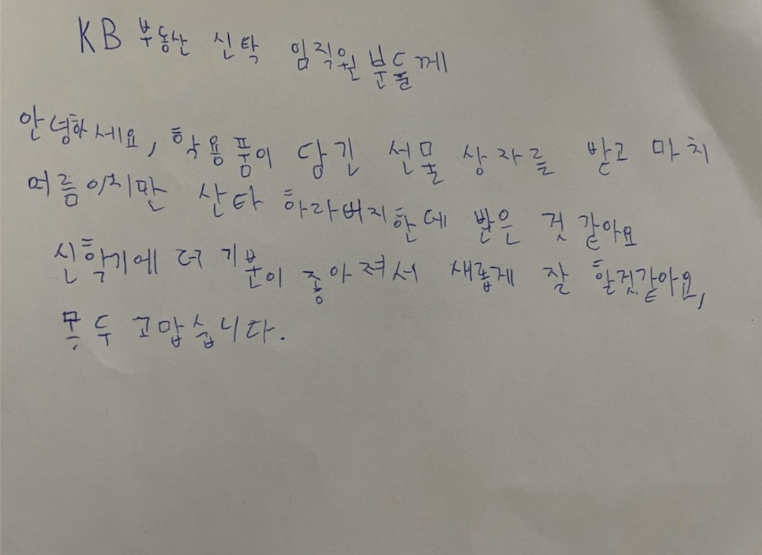 KB 부동산 신탁 임직원 분들께
안녕하세요, 학용품이 담긴 선물 상자를 받고 마치
여름이지만 산타 하라버지한데 받은 것 같아요
신학기에 더 기분이 좋아져서 새롭게 잘 할것같아요,
모두 고맙습니다.